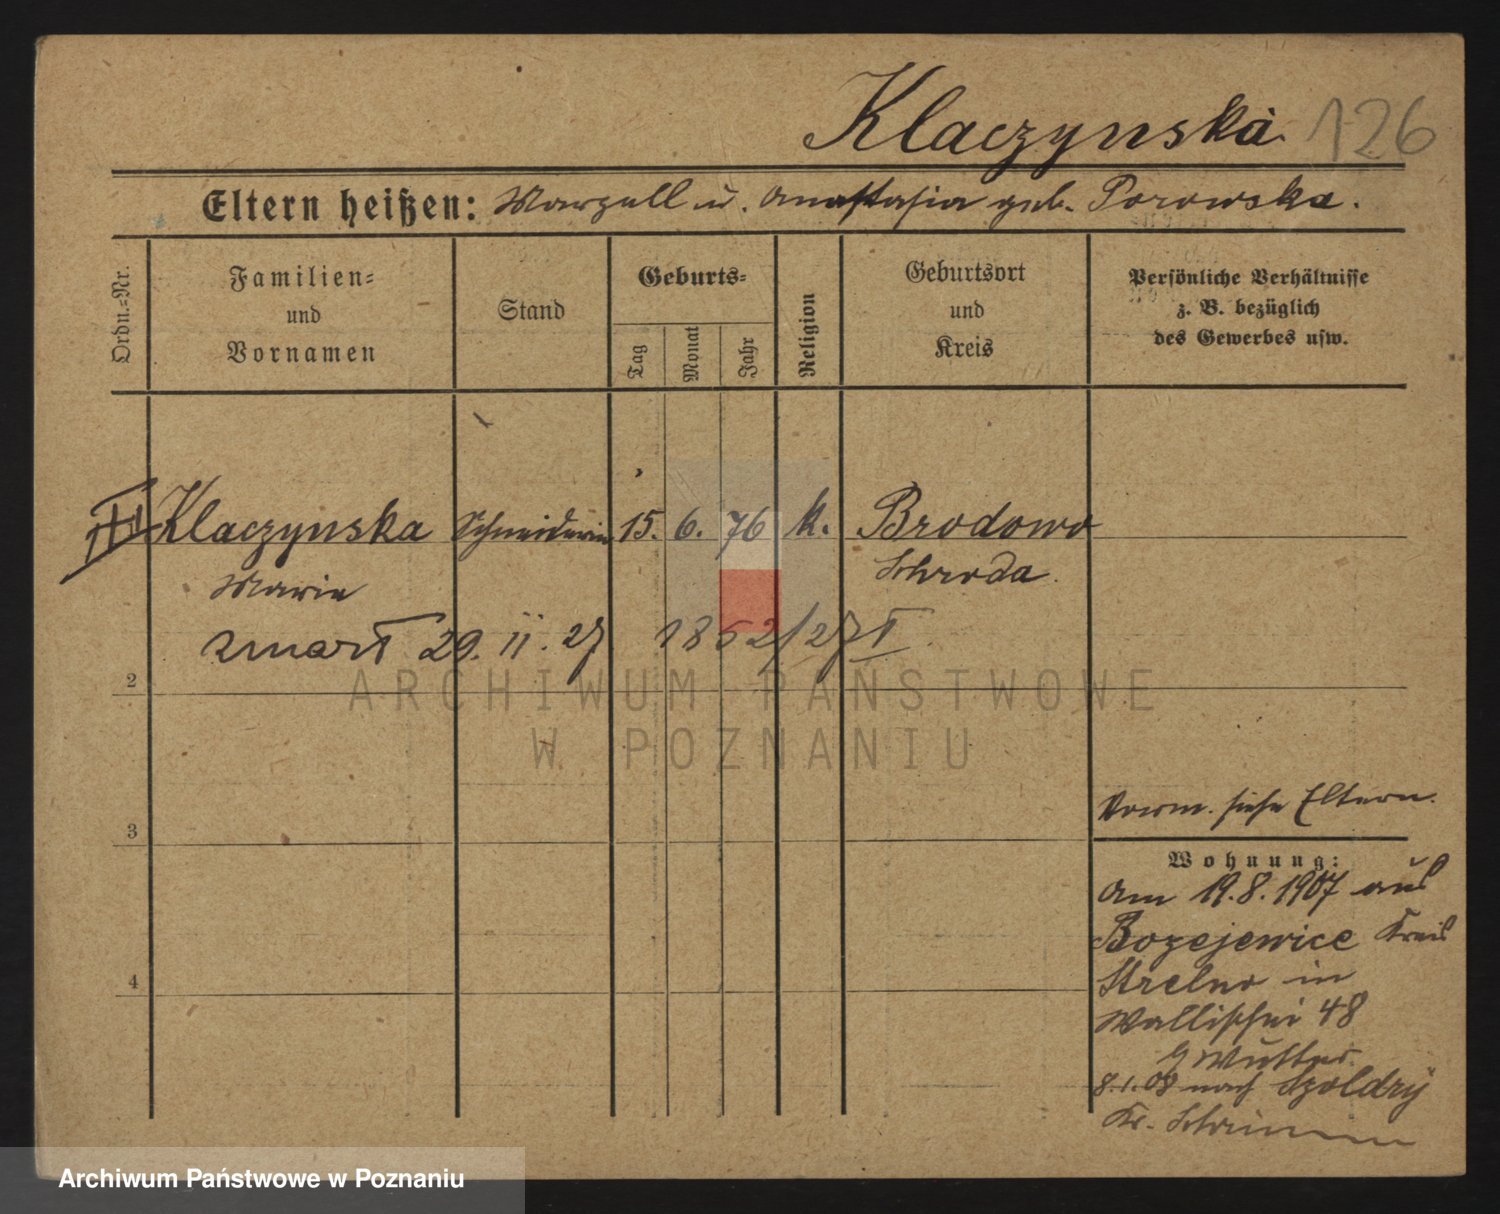 Klaczynska 126
Eltern heißen: Marzell u. Anastasia geb. Porowska.
Ordn.-Nr.
Familien-
und
Vornamen
Stand
Geburts-
Tag
Monat
Jahr
Religion
Geburtsort
und
Kreis
Persönliche Verhältnisse
z. B. bezüglich
des Gewerbes usw.
Klaczynska Schneiderin 15. 6. 76 k. Brodowo
Marie Schroda.
zmarł 29. 11. 27 1852/27 I
2
ARCHIWUM PAŃSTWOWE
W POZNANIU
Verm. siehe Eltern.
3
Wohnung:
Am 19.8.1907 aus
Bozejewice Kreis
Strelno in
Wallischei 48
b/ Mutter.
4
8.1.08 nach Szoldry
Kr. Schrimm
Archiwum Państwowe w Poznaniu